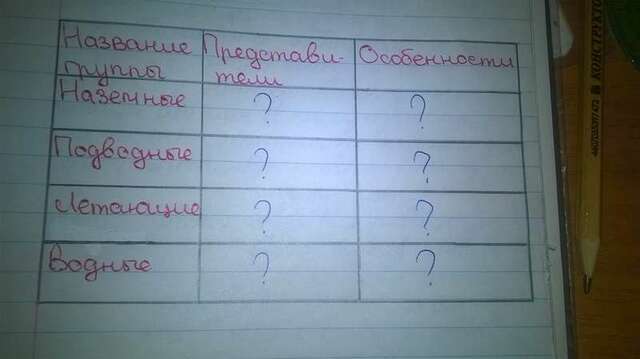 Название группы
Представители
Особенности
Наземные
?
?
Подводные
?
?
Летающие
?
?
Водные
?
?
4607065097472 КОНСТРУКТО